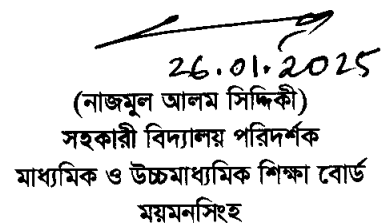 26.01.2025
(নাজমুল আলম সিদ্দিকী)
সহকারী বিদ্যালয় পরিদর্শক
মাধ্যমিক ও উচ্চমাধ্যমিক শিক্ষা বোর্ড
ময়মনসিংহ